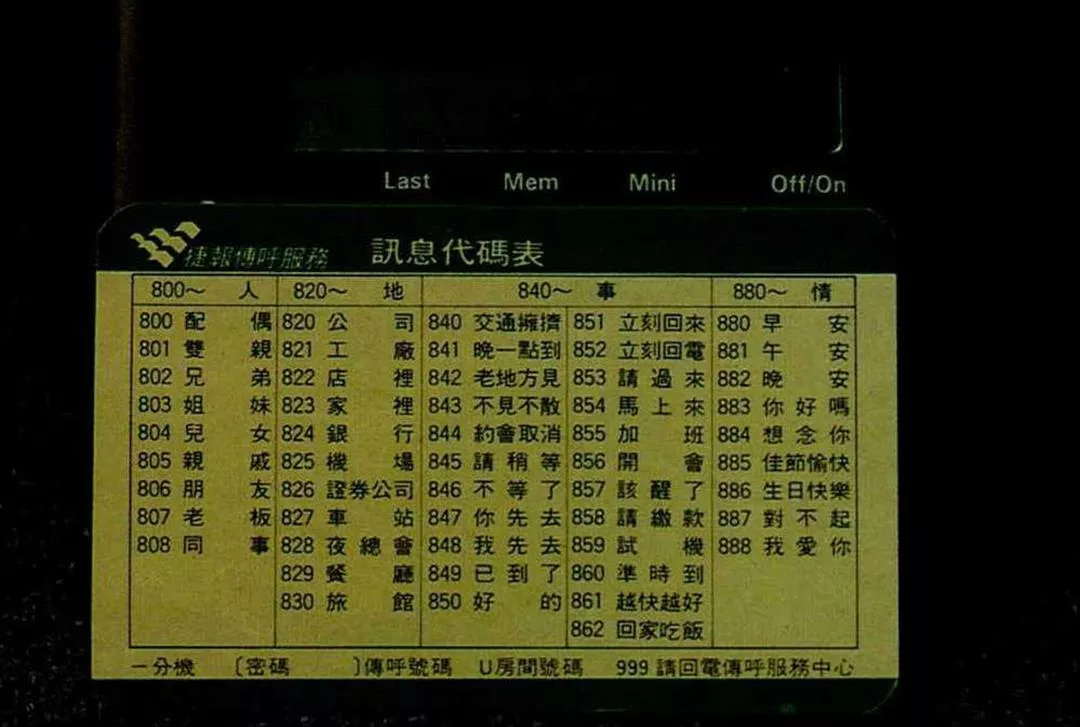 Last Mem Mini Off/On
捷報傳呼服務 訊息代碼表
800～ 人 820～ 地 840～ 事 880～ 情
800 配偶 820 公司 840 交通擁擠 851 立刻回來 880 早安
801 雙親 821 工廠 841 晚一點到 852 立刻回電 881 午安
802 兄弟 822 店裡 842 老地方見 853 請過來 882 晚安
803 姐妹 823 家裡 843 不見不散 854 馬上來 883 你好嗎
804 兒女 824 銀行 844 約會取消 855 加班 884 想念你
805 親戚 825 機場 845 請稍等 856 開會 885 佳節愉快
806 朋友 826 證券公司 846 不等了 857 該醒了 886 生日快樂
807 老板 827 車站 847 你先去 858 請繳款 887 對不起
808 同事 828 夜總會 848 我先去 859 試機 888 我愛你
829 餐廳 849 已到了 860 準時到
830 旅館 850 好的 861 越快越好
862 回家吃飯
－分機 〔密碼 〕傳呼號碼 U房間號碼 999 請回電傳呼服務中心